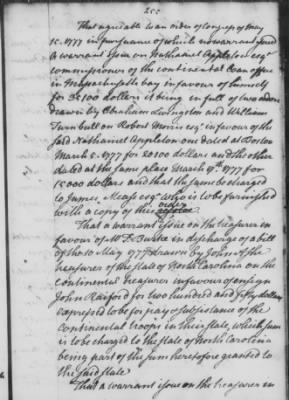 255
That agreeable to an order of Congress of May
15. 1777 in pursuance of which no warrant issued
A warrant issue on Nathaniel Appleton esqr
commissioner of the continental loan office
in Massachusetts bay in favour of himself
for 35100 dollars it being in full of two orders
drawn by Abraham Livingston and William
Turnbull on Robert Morris esqr in favour of the
said Nathaniel Appleton one dated at Boston
March 8. 1777 for 20100 dollars and the other
dated at the same place March 9th. 1777 for
15000 dollars and that the same be charged
to James Mease esqr. who is to be furnished
with a copy of this order
That a warrant issue on the treasurer in
favour of Mr T Burke in discharge of a bill
of the 10 May 1777 drawn by John of the
treasurers of the state of North Carolina on the
continental treasurer in favour of ensign
John Raiford for two hundred and fifty dollars
expressed to be for pay & subsistance of the
continental troops in their state, which sum
is to be charged to the state of North Carolina
being part of the sum heretofore granted to
the said state
That a warrant issue on the treasurer in